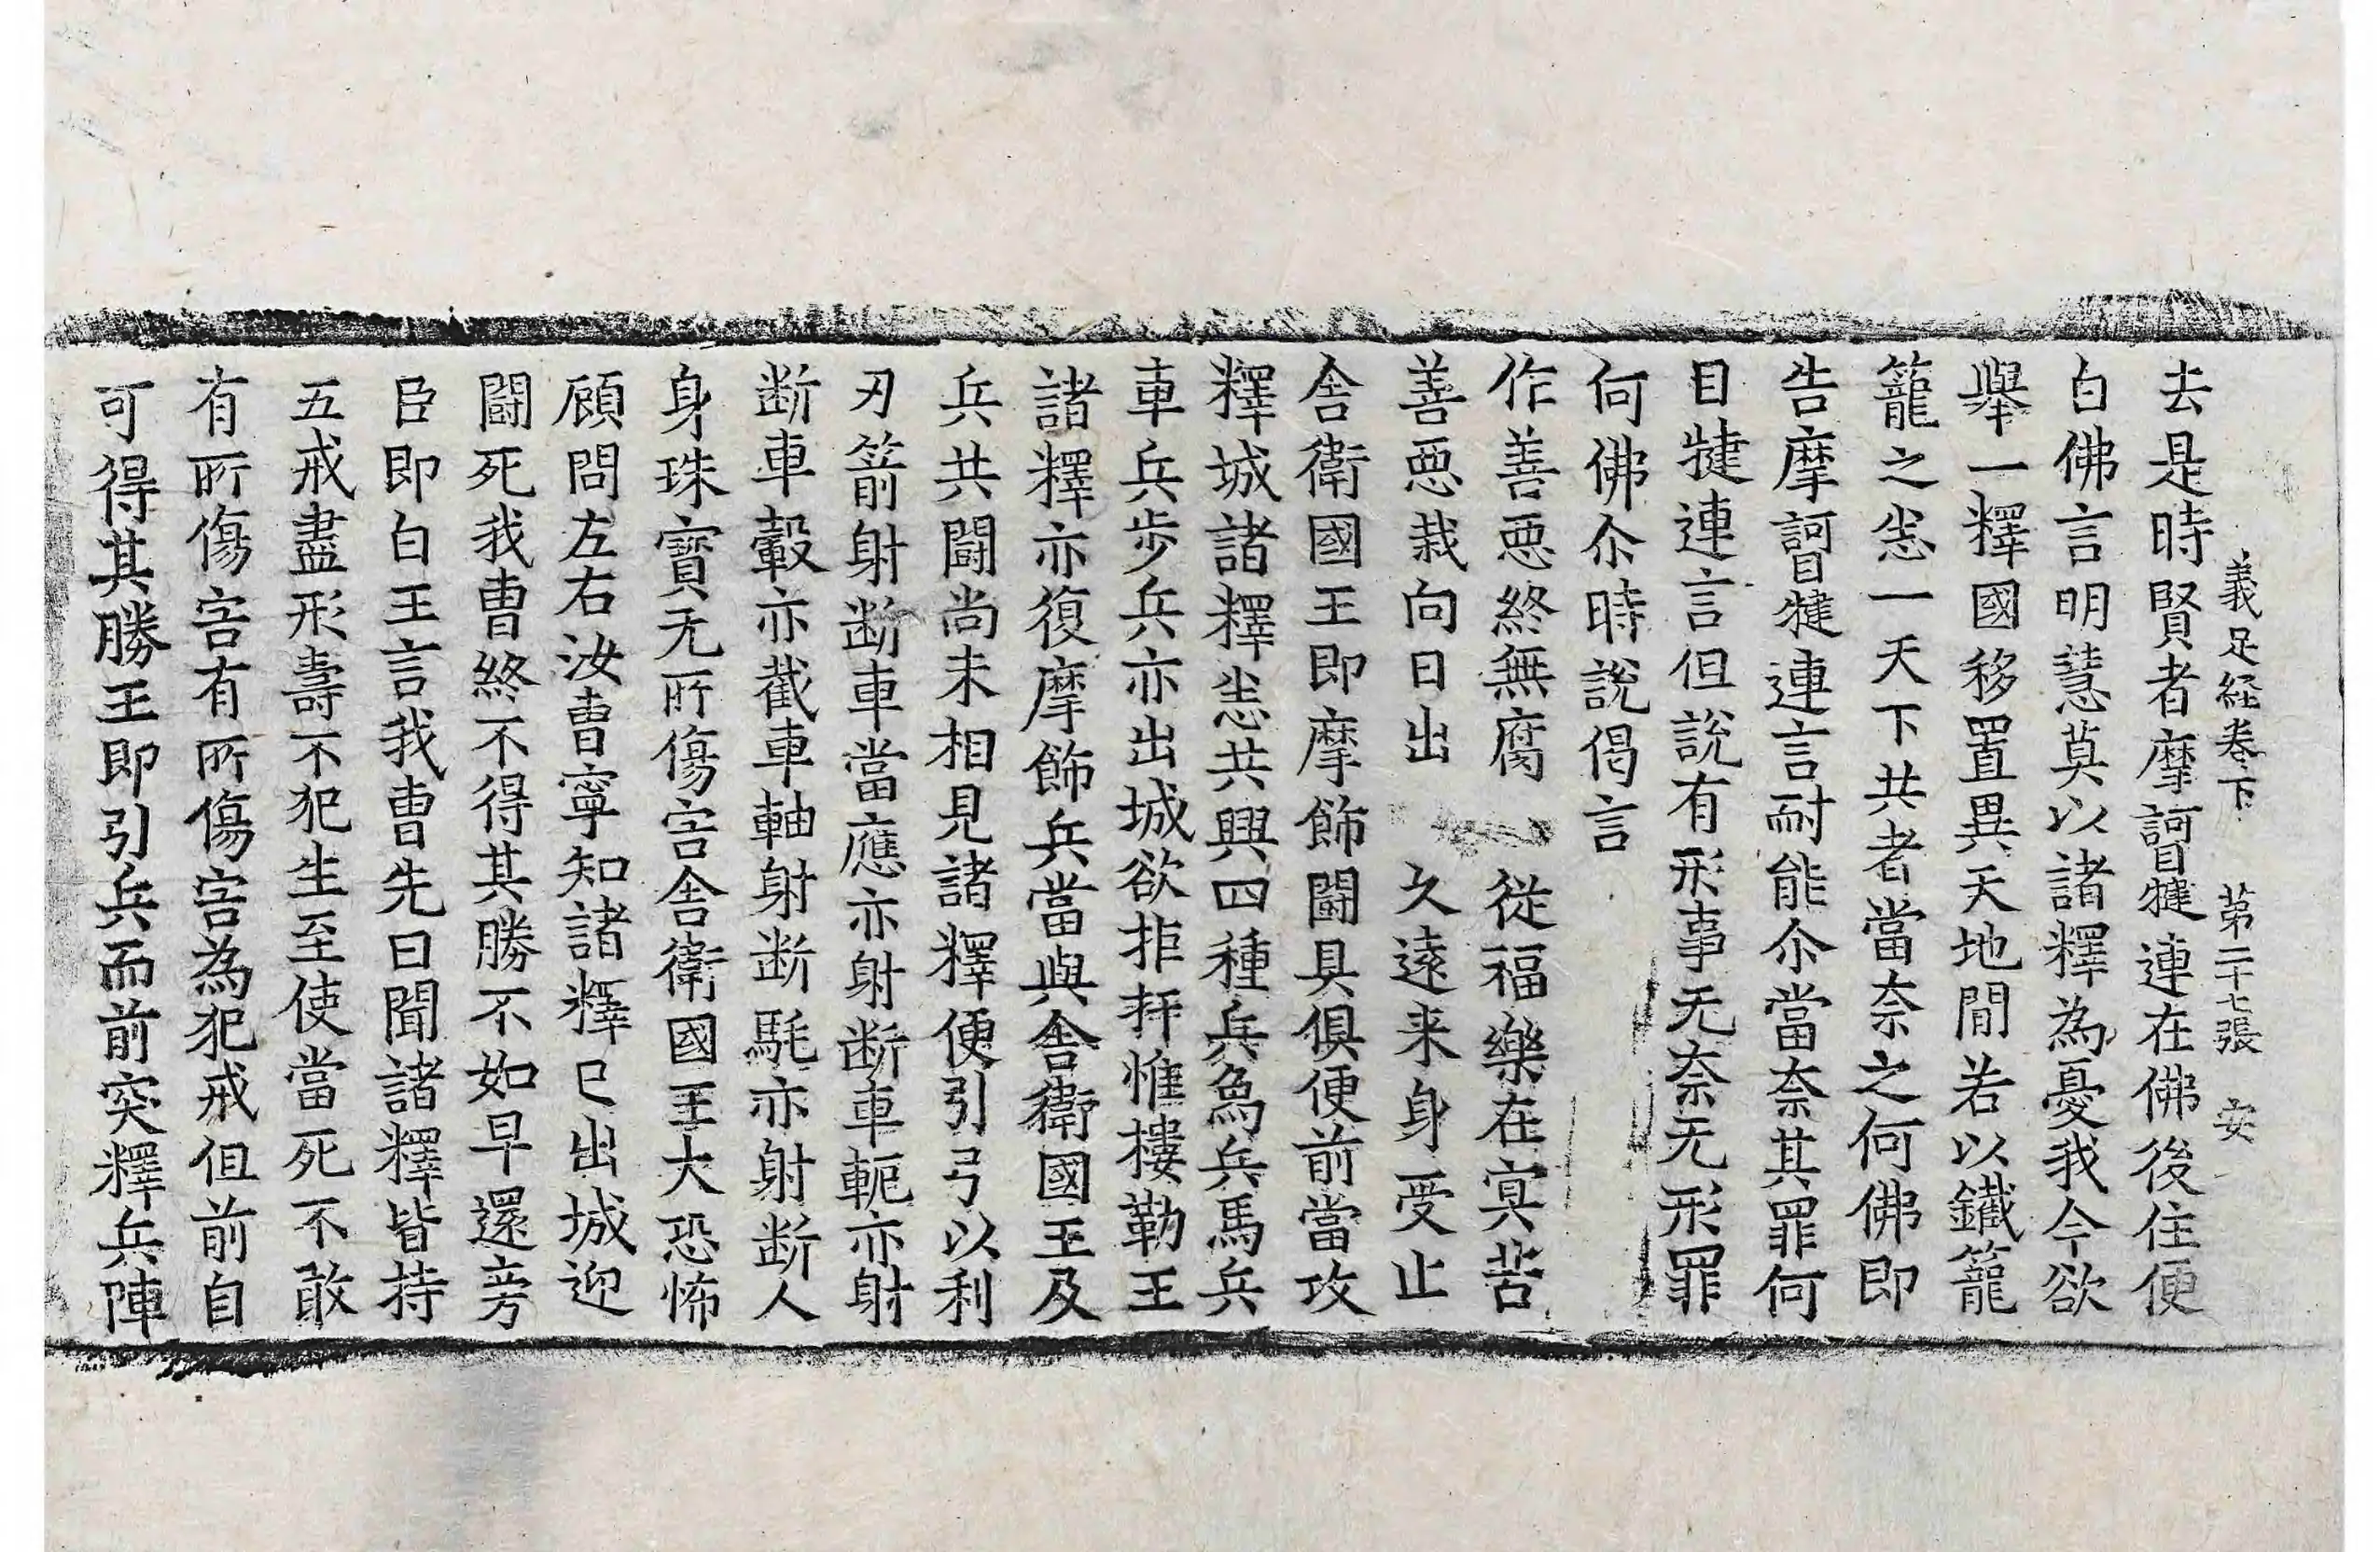 義足経卷下 苐二十七張 安
去是時賢者摩訶目揵連在佛後住便
白佛言明慧莫以諸釋為憂我今欲
舉一釋國移置異天地間若以鐵籠
籠之㳟一天下共者當奈之何佛即
告摩訶目揵連言耐能尒當奈其罪何
目揵連言但說有形事无奈无形罪
何佛尒時說偈言
作善惡終無腐 從福樂在冥苦
善惡栽向日出 久遠来身受止
舍衛國王即摩飾鬪具俱便前當攻
釋城諸釋㳟共興四種兵為兵馬兵
車兵步兵亦出城欲拒抨惟摟勒王
諸釋亦復摩飾兵當與舍衛國王及
兵共鬪尚未相見諸釋便引弓以利
刃箭射断車當應亦射断車軛亦射
断車轂亦截車軸射断毦亦射断人
身珠寶无所傷害舍衛國王大恐怖
顧問左右汝曹寧知諸釋已出城迎
鬪死我曹終不得其勝不如早還旁
臣即白王言我曹先曰聞諸釋皆持
五戒盡形壽不犯生至使當死不敢
有所傷害有所傷害為犯戒但前自
可得其勝王即引兵而前突釋兵陣